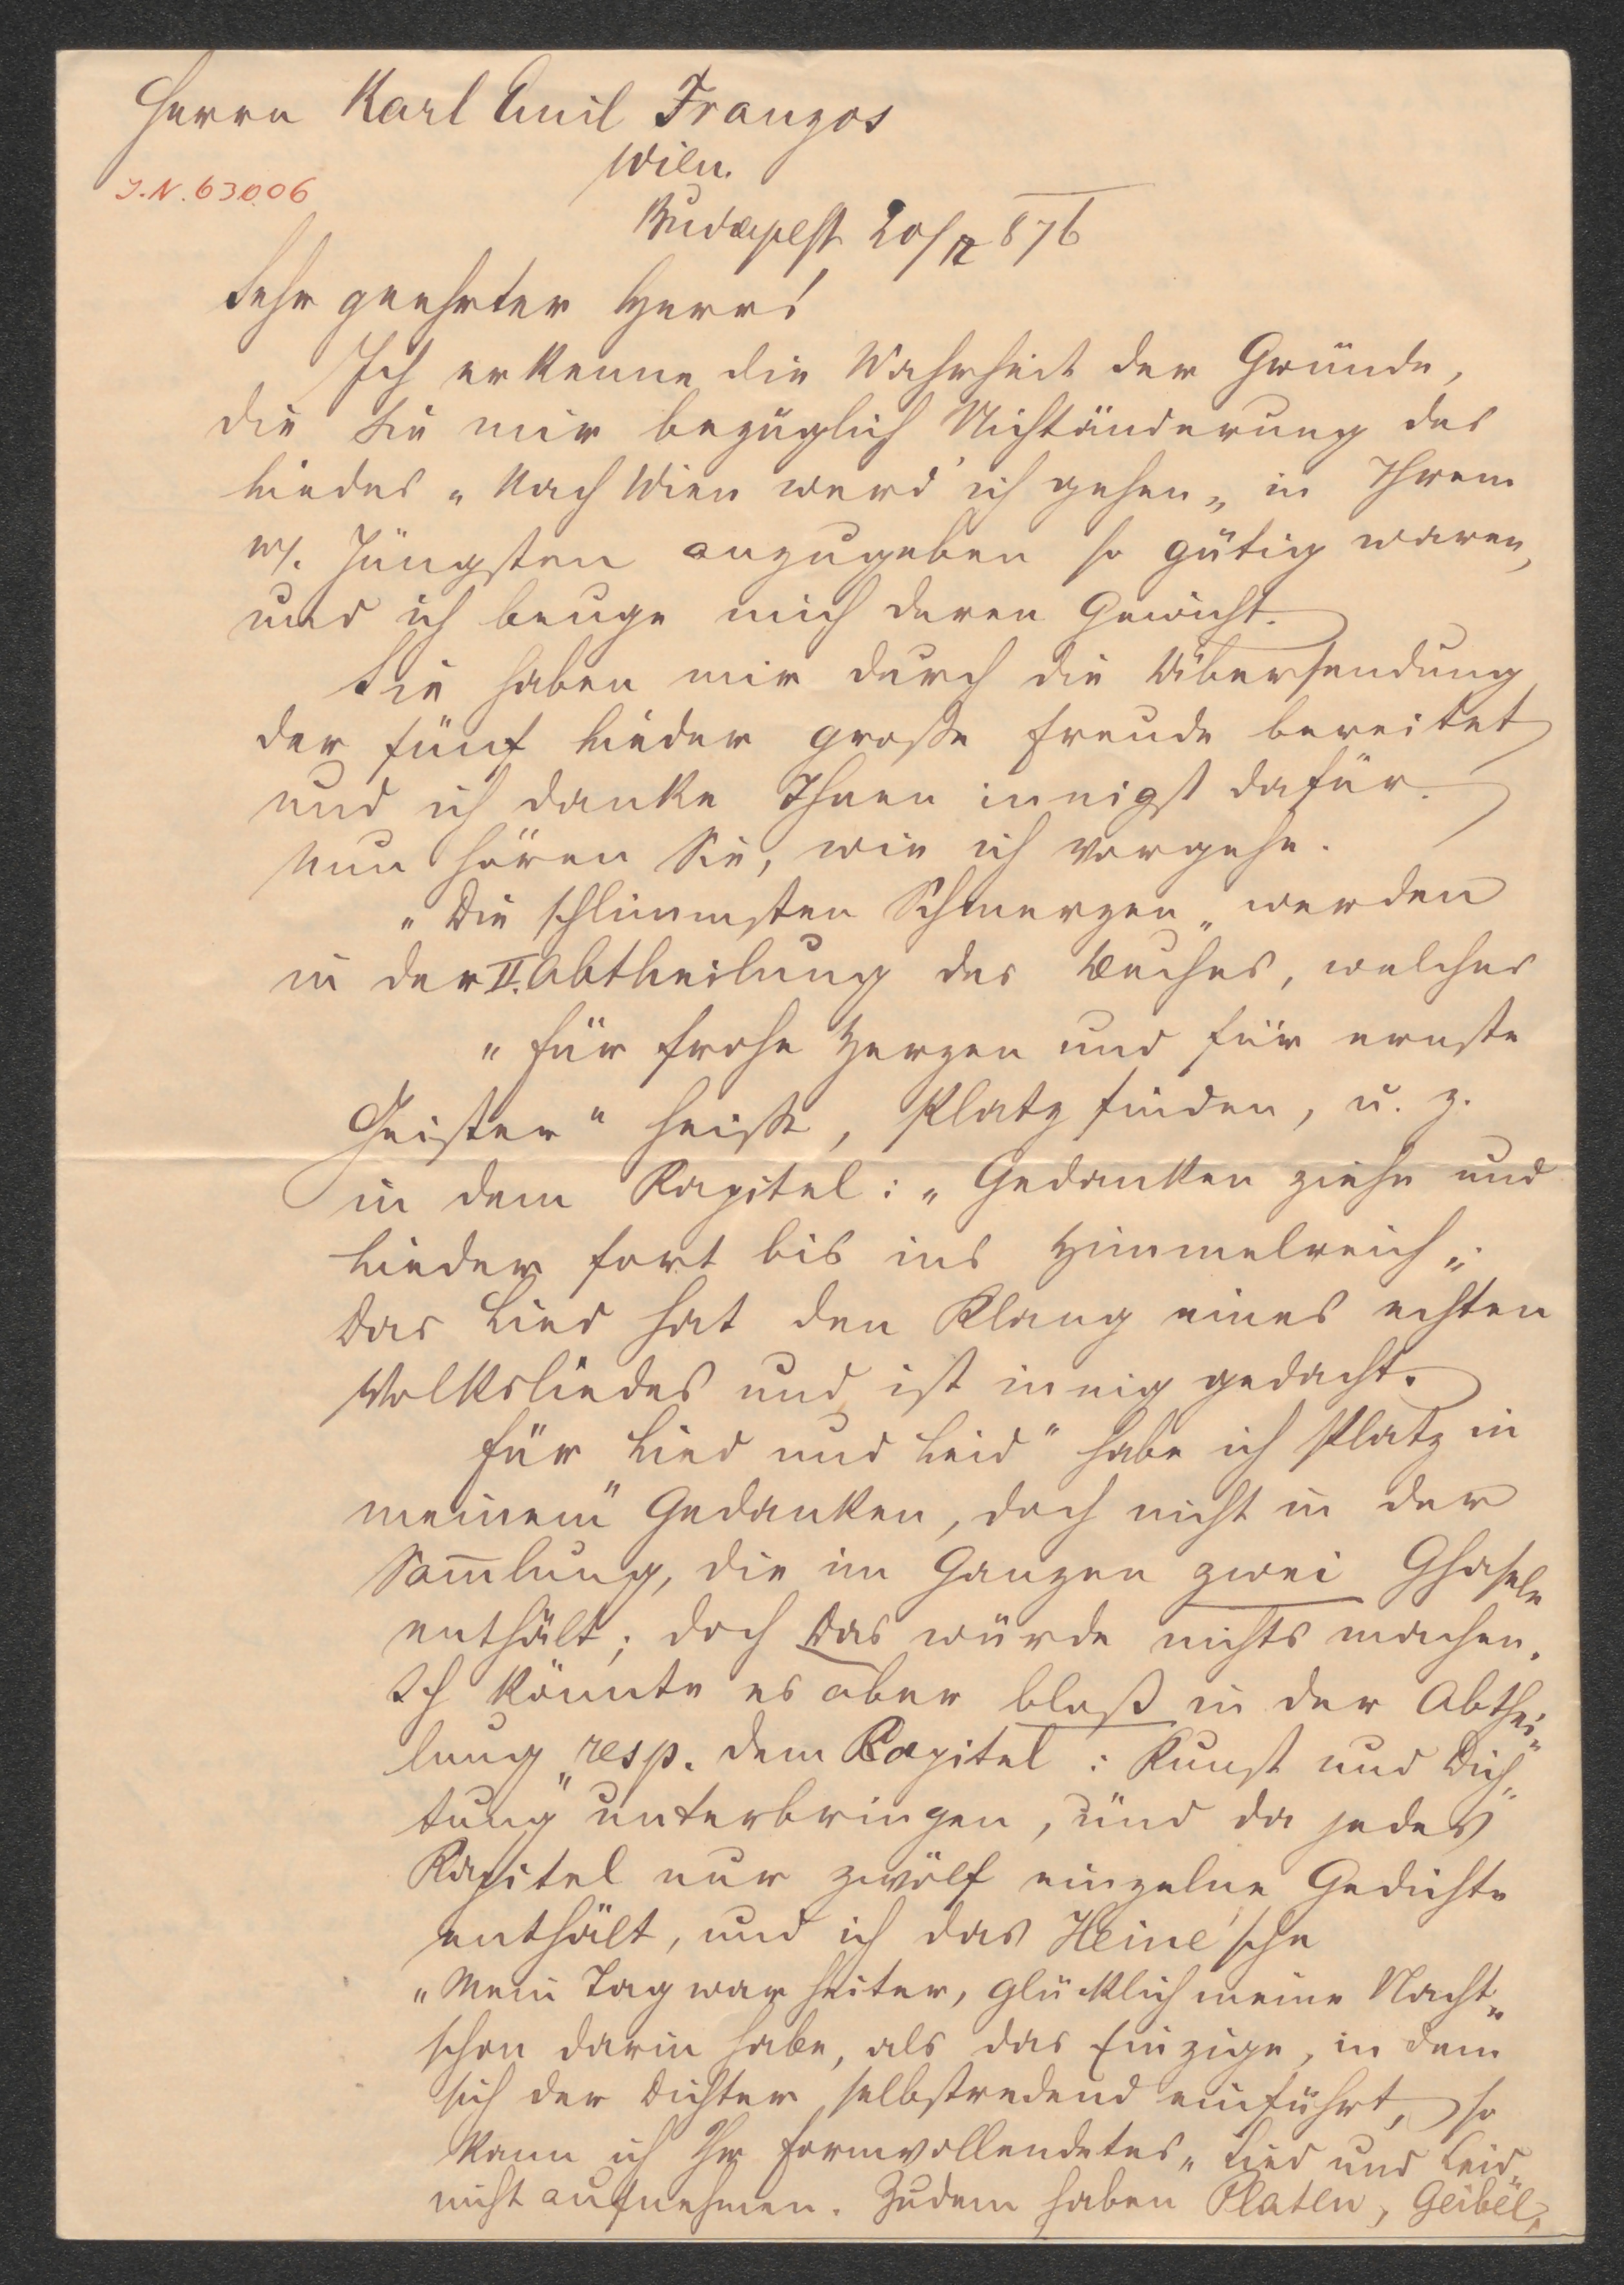 Herrn Karl Emil Franzos
Wien.
I.N. 63006
Budapest 20/12 876
Sehr geehrter Herr!
Ich erkenne die Wahrheit der Gründe,
die Sie mir bezüglich Nichtänderung des
Liedes „Nach Wien werd' ich gehen„ in Ihrem
w. Jüngsten anzugeben so gütig waren,
und ich beuge mich deren Gewicht.
Sie haben mir durch die Übersendung
der fünf Lieder große Freude bereitet
und ich danke Ihnen innigst dafür.
Nun hören Sie, wie ich vorgehe.
„Die schlimmsten Schmerzen„ werden
in der II. Abtheilung des Buches, welches
„Für frohe Herzen und für ernste
Geister“ heißt, Platz finden, u. z.
in dem Kapitel: „Gedanken ziehn und
Lieder fort bis ins Himmelreich„.
Das Lied hat den Klang eines echten
Volksliedes und ist innig gedacht.
Für „Lied und Leid“ habe ich Platz in
meinem Gedanken, doch nicht in der
Sam̄lung, die im Ganzen zwei Ghasele
enthält; doch das würde nichts machen.
Ich könnte es aber bloß in der Abthei-
lung resp. dem Kapitel: „Kunst und Dich-
tung“ unterbringen, und da jedes
Kapitel nur zwölf einzelne Gedichte
enthält, und ich das Heine'sche
„Mein Tag war heiter, glücklich meine Nacht„
schon darin habe, als das Einzige, in dem
sich der Dichter selbstredend einführt, so
kann ich Ihr formvollendetes „Lied und Leid„
nicht aufnehmen. Zudem haben Platen, Geibel,